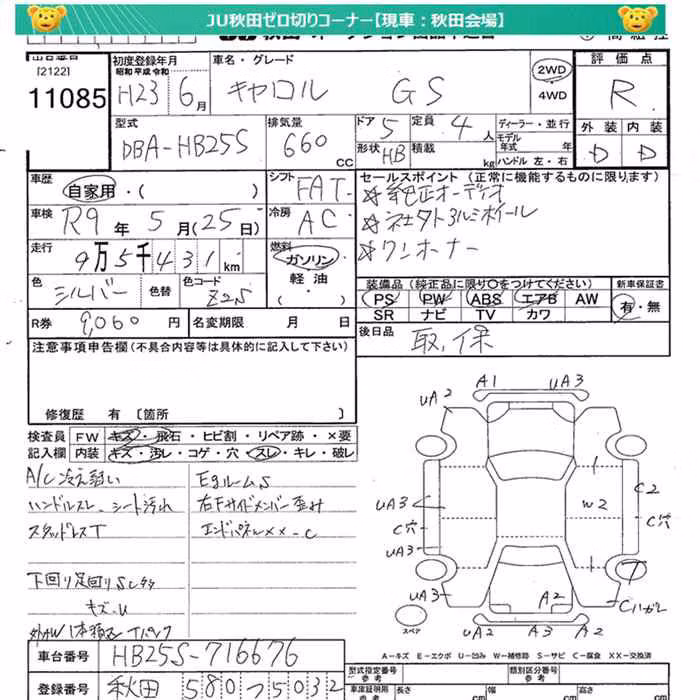 JU秋田ゼロ切りコーナー【現車：秋田会場】
[2122]
11085
初度登録年月
昭和 平成 令和
H23 6月
車名・グレード
キャロル GS
2WD
4WD
評価点
R
外装 内装
D D
型式
DBA-HB25S
排気量
660 CC
ドア 5
定員 4人
形状 HB
積載 kg
ディーラー・並行
モデル年式 年
ハンドル 左・右
車歴
自家用・( )
シフト
FAT
車検
R9年5月(25日)
冷房
AC
走行
9万5千431km
燃料
ガソリン
軽油
・( )
色
シルバー
色替
色コード
Z2S
R券 9,060円
名変期限 月 日
セールスポイント（正常に機能するものに限ります）
☆純正オーディオ
☆社外アルミホイール
☆ワンオーナー
装備品（純正品に限り○をつけてください）
PS PW ABS エアB AW
SR ナビ TV カワ
新車保証書
有・無
後日品
取,保
注意事項申告欄（不具合内容等は具体的に記入して下さい）
修復歴 有〔箇所 〕
検査員 FW キズ・飛石・ヒビ割・リペア跡・×要
記入欄 内装 キズ・汚レ・コゲ・穴・スレ・キレ・破レ
A/C冷え弱い
ハンドルスレ シート汚れ
スタッドレスT
下回り足回りS
キズ・U
Egルーム S
右Fサイドメンバー歪み
エンドパネル××-C
UA2 A1 UA3
UA3 C穴 UA3
W2
C2
C穴
UA3
A2
UA2 A3 A2
スペア
A-キズ E-エクボ U-凹み W-補修跡 S-サビ C-腐食 XX-交換済
車台番号
HB25S-716676
登録番号
秋田 580 7 5032
型式指定番号
参考
類別区分番号
参考
車庫証明用
参考
長さ cm
幅 cm
高さ cm